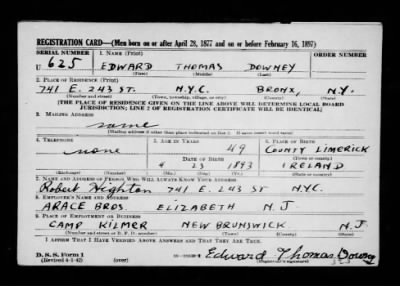 REGISTRATION CARD—(Men born on or after April 28, 1877 and on or before February 16, 1897)
SERIAL NUMBER 1. NAME (Print) ORDER NUMBER
U 625 EDWARD THOMAS DOWNEY
(First) (Middle) (Last)
2. PLACE OF RESIDENCE (Print)
741 E. 243 ST. N.Y.C. BRONX, N.Y.
(Number and street) (Town, township, village, or city) (County) (State)
[THE PLACE OF RESIDENCE GIVEN ON THE LINE ABOVE WILL DETERMINE LOCAL BOARD
JURISDICTION; LINE 2 OF REGISTRATION CERTIFICATE WILL BE IDENTICAL]
3. MAILING ADDRESS
same
[Mailing address if other than place indicated on line 2. If same insert word same]
4. TELEPHONE 5. AGE IN YEARS 6. PLACE OF BIRTH
none 49 COUNTY LIMERICK
DATE OF BIRTH (Town or county)
4 23 1893 IRELAND
7. NAME AND ADDRESS OF PERSON WHO WILL ALWAYS KNOW YOUR ADDRESS
Robert Highton 741 E. 243 ST N.Y.C.
8. EMPLOYER'S NAME AND ADDRESS
ARACE BROS. ELIZABETH N.J
9. PLACE OF EMPLOYMENT OR BUSINESS
CAMP KILMER NEW BRUNSWICK N.J.
(Number and street or R. F. D. number) (Town) (County) (State)
I AFFIRM THAT I HAVE VERIFIED ABOVE ANSWERS AND THAT THEY ARE TRUE.
D. S. S. Form 1
(Revised 4-1-42) Edward Thomas Downey